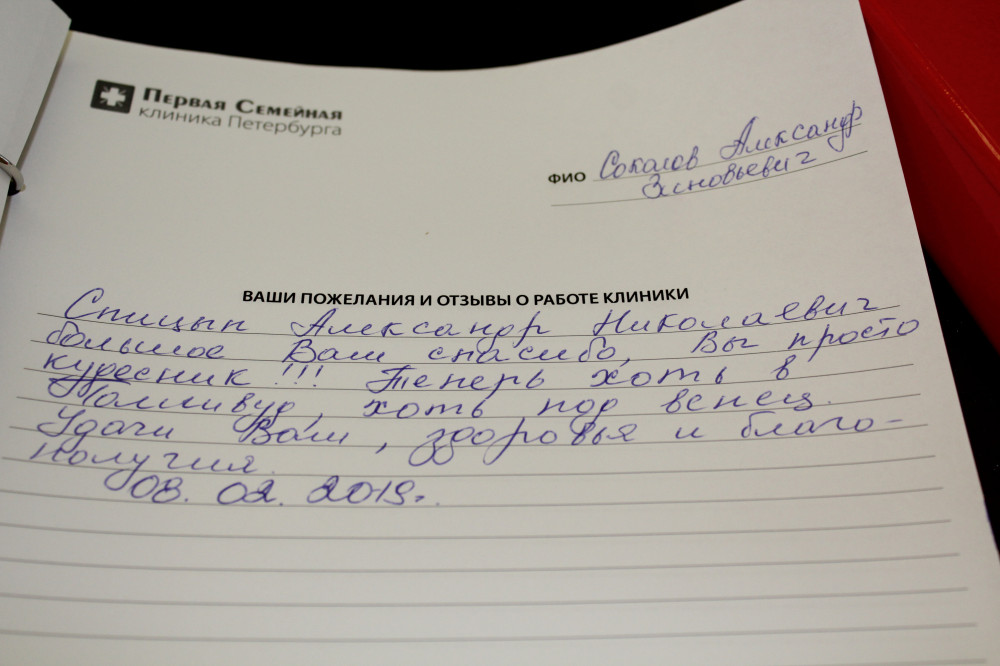 Первая Семейная
клиника Петербурга
ФИО Соколов Александр
Зиновьевич
ВАШИ ПОЖЕЛАНИЯ И ОТЗЫВЫ О РАБОТЕ КЛИНИКИ
Спицын Александр Николаевич
большое Вам спасибо, Вы просто
кудесник!!! Теперь хоть в
Голливуд, хоть под венец.
Удачи Вам, здоровья и благо-
получия.
08. 02. 2019г.